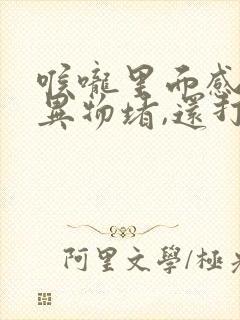 喉嚨里面感
異物堵,還打
阿里文學/極光